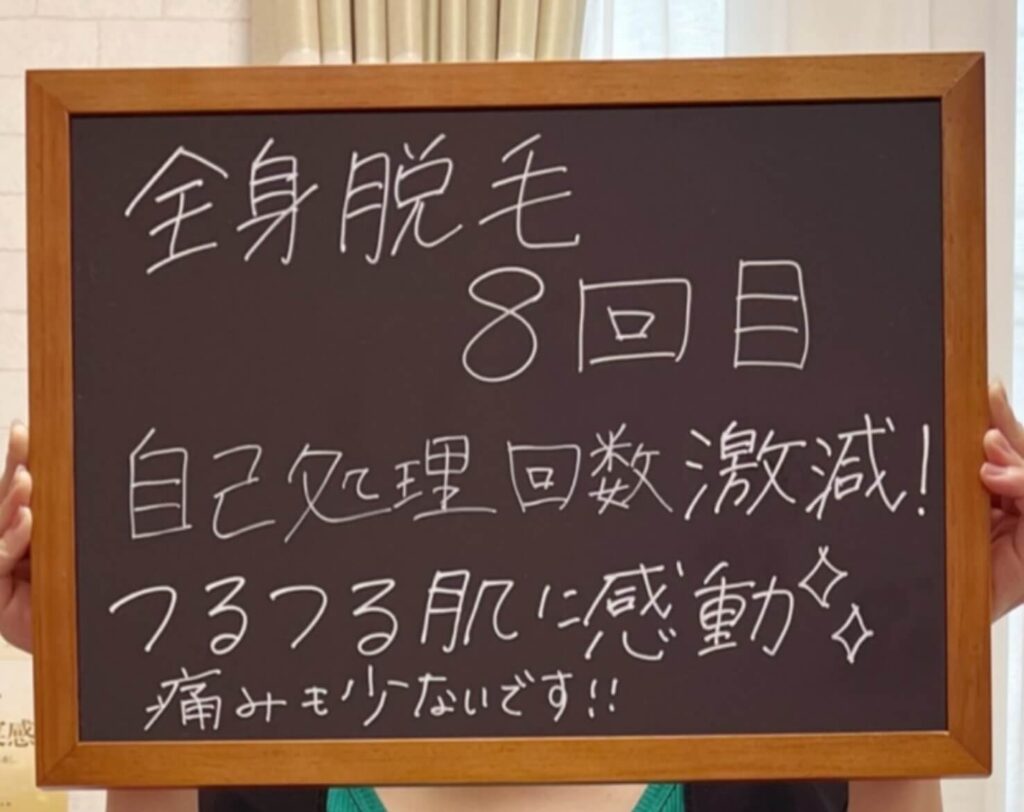 全身脱毛
8回目
自己処理回数激減!
つるつる肌に感動
痛みも少ないです!!
感